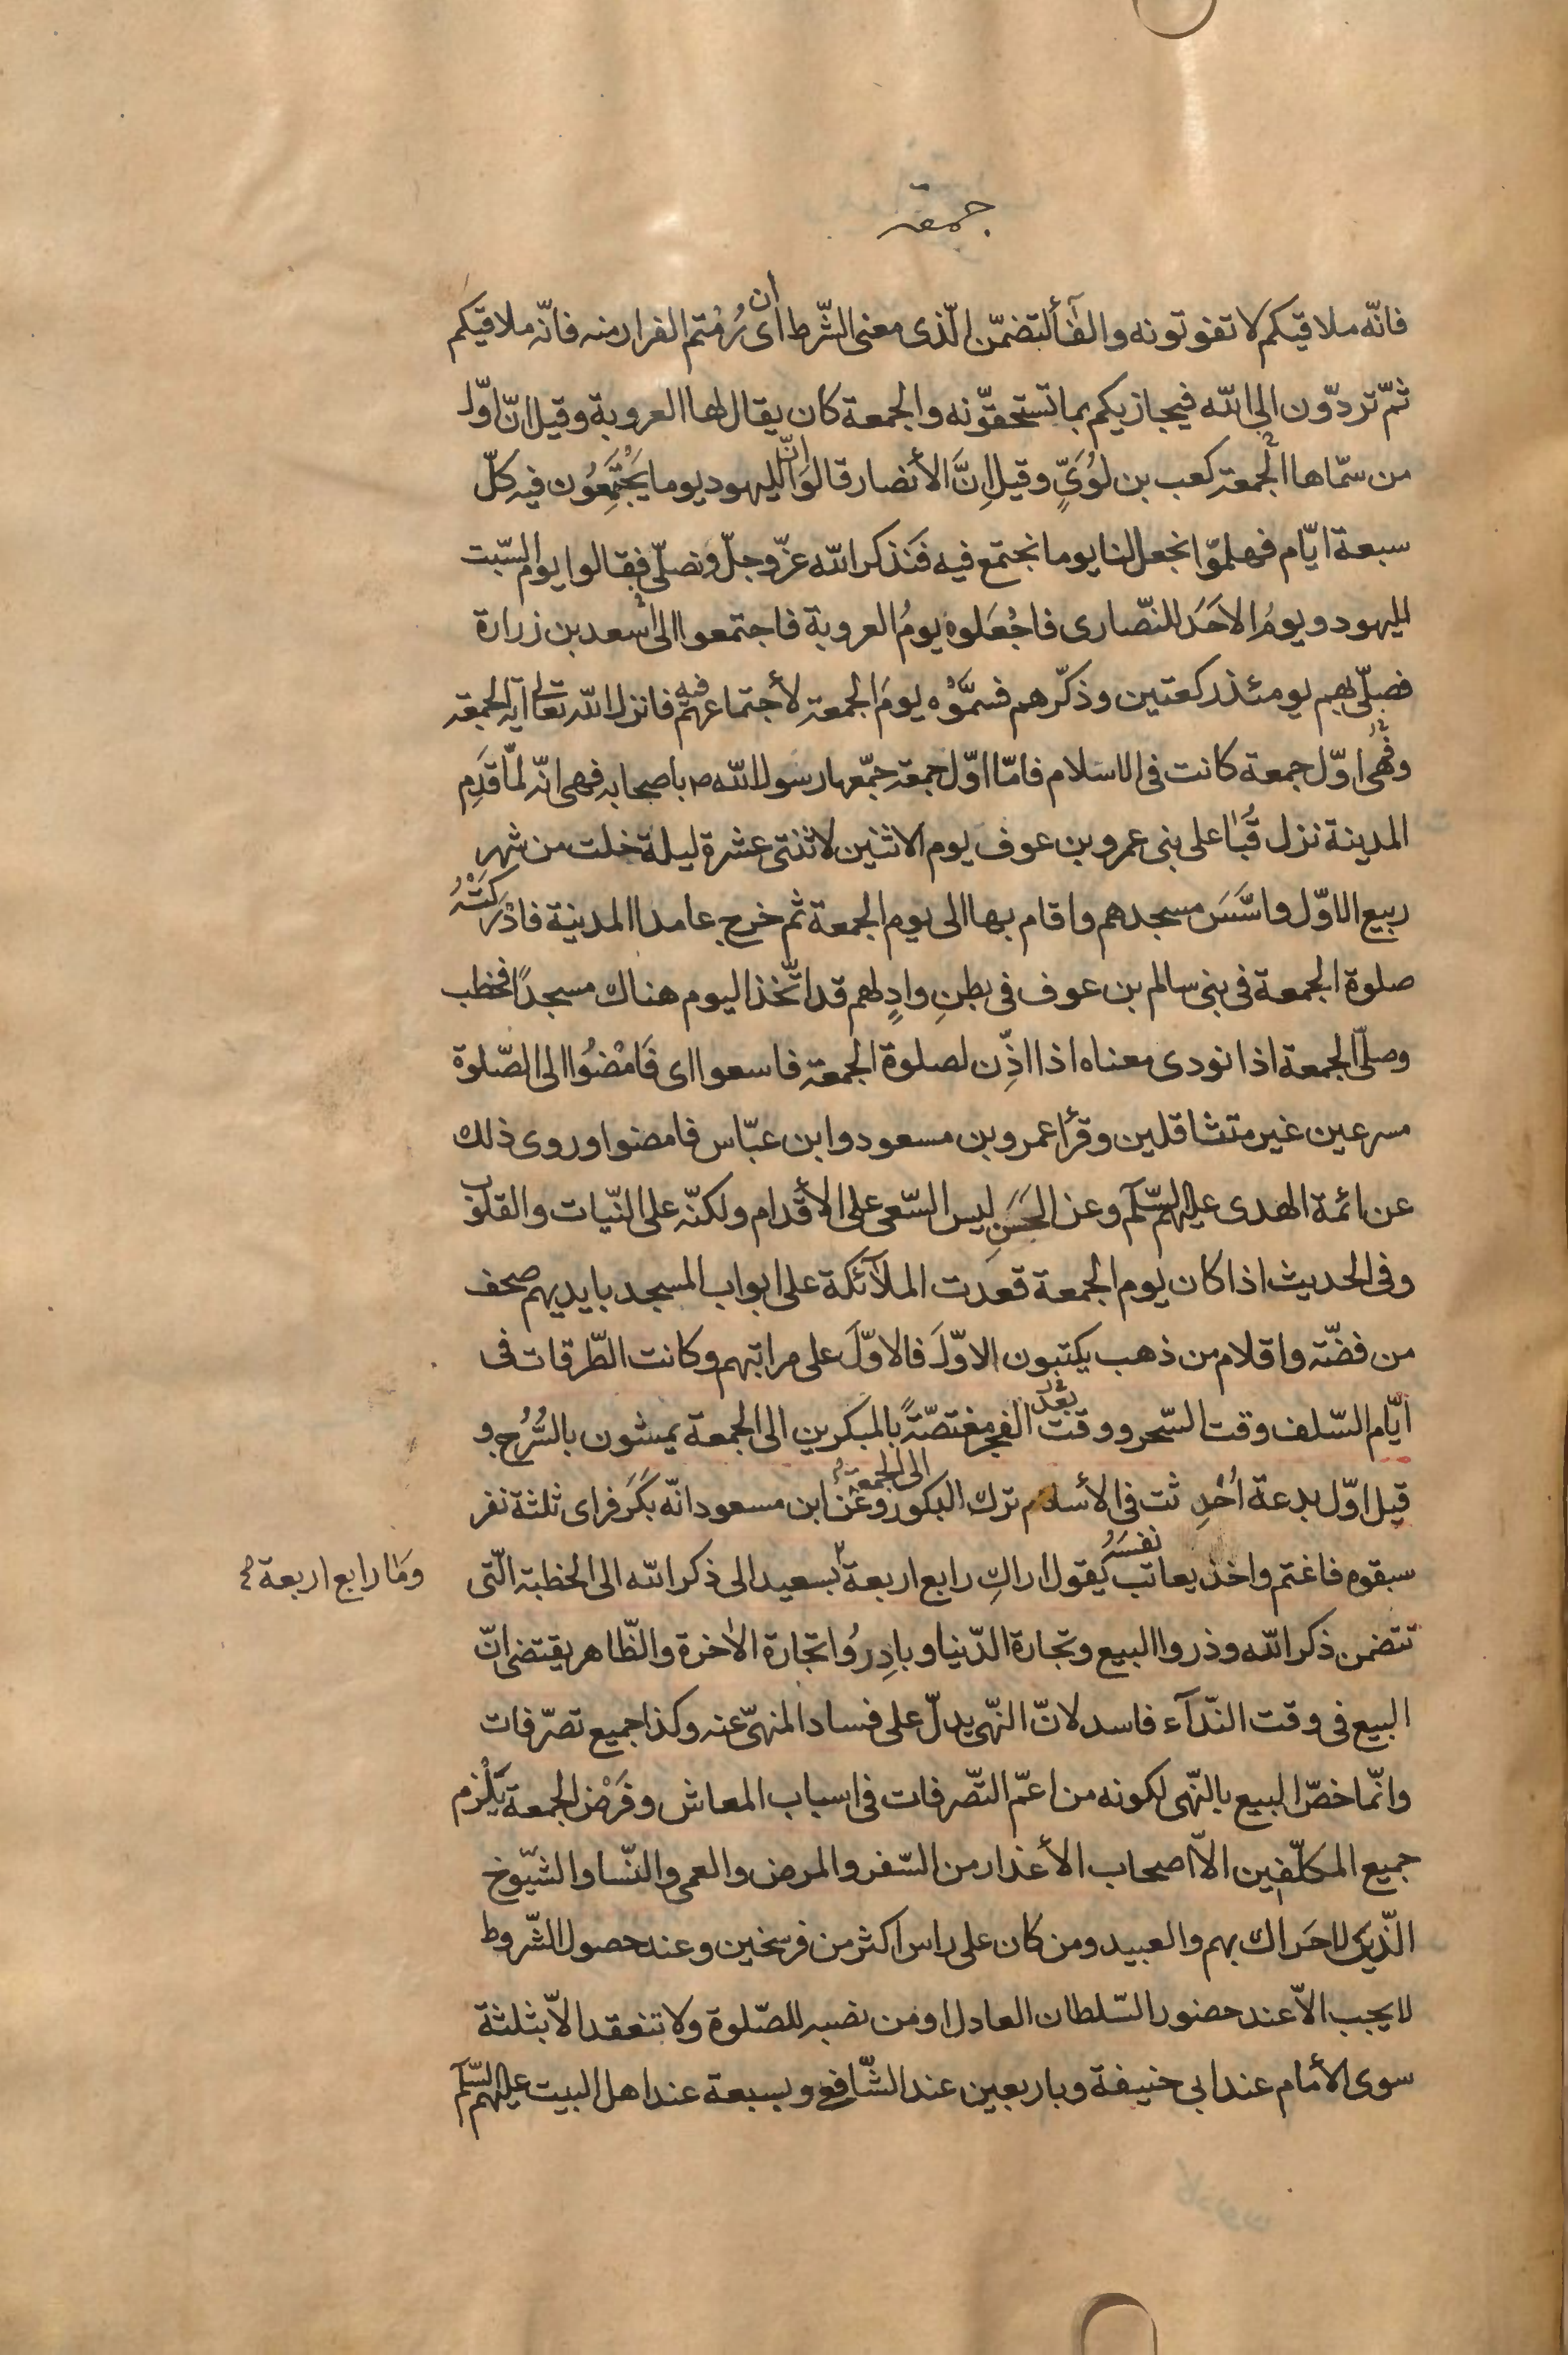 جمعة
فانّه ملاقيكم لا تفوتونه والفآء لتضمّن الّذى معنى الشّرط اى ان رُمْتم الفرار منه فانّه ملاقيكم
ثمّ تردّون الى الله فيجازيكم بما تستحقّونه والجمعة كان يقال لها العروبة وقيل انّ اوّل
من سمّاها الجمعة كعب بن لُوَىٍّ وقيل اِنَّ الأنصار قالوا انّ لليهود يوما يَجْتَمِعُون فيه كلّ
سبعة ايّام فهلمّوا نجعل لنا يوما نجتمع فيه فَنَذكر الله عزّ وجلّ ونصلّى فقالوا يوم السّبت
لليهود ويومُ الاحَد للنّصارى فاجْعَلوه يومُ العروبة فاجتمعوا الى اسعد بن زرارة
فصلّى بهم يومئذ ركعتين وذكّرهم فسمَّوْه يومَ الجمعة لأجتماعهم فيه فانزل الله تعالى آية الجمعة
وفهى اوّل جمعة كانت فى الاسلام فامّا اوّل جمعة جمّعها رسول الله ص باصحابه فهى انّه لمّا قَدِم
المدينة نزل قُبَا على بنى عمرو بن عوف يوم الاثنين لاثنتى عشرة ليلة خلت من شهر
ربيع الاوّل واسَّسَ مسجدهم واقام بها الى يوم الجمعة ثم خرج عامدا المدينة فادْرَكَتْهُ
صلوة الجمعة فى بنى سالم بن عوف فى بطنِ وادٍ لهم قد اتّخذ اليوم هناك مسجدًا فخطب
وصلّى الجمعة اذا نودى معناه اذا اذِّن لصلوة الجمعة فاسعوا اى فَامْضُوا الى الصّلوة
مسرعين غير متثاقلين وقرأ عمرو بن مسعود وابن عبّاس فامضوا وروى ذلك
عن ائمة الهدى عليهم السّلم وعن الحَسَنِ ليس السّعى على الأقدام ولكنّه على النّيات والقلوب
وفى الحديث اذا كان يوم الجمعة قعدت الملآئكة على ابواب المسجد بايديهم صحف
من فضّة واقلام من ذهب يكتبون الاوّلَ فالاوّلَ على مراتبهم وكانت الطّرقات فى
ايّام السّلف وقت السّحر ووقت بعد الفجر مغتصّةً بالمبكرين الى الجمعة يمشون بالسُّرُج و
قيل اوّل بدعة اُحْدِثت فى الأسلام ترك البكور الى الجمعة وعَن ابن مسعود انّه بَكَرَ فراى ثلثة نفر
سبقوه فاغتم واخذ يعاتب نفسَهُ يقول اراكِ رابع اربعة بسعيد الى ذكر الله الى الخطبة الّتى
وَمَا رابع اربعة
تتضمن ذكر الله وذروا البيع وتجارة الدّنيا وبادِرُوا تجارة الاخرة والظّاهر يقتضى انّ
البيع فى وقت النّدآء فاسد لانّ النّهى يدلّ على فساد المنهىّ عنه وكذا جميع تصرّفات
وانّما خصّ البيع بالنّهى لكونه من اعمّ التّصرفات فى اسباب المعاش وفَرْض الجمعة يَلْزم
جميع المكلّفين الاّ اصحاب الأعذار من السّفر والمرض والعمى والنّسا والشيّوخ
الّذين لا حَراك بهم والعبيد ومن كان على راس اكثر من فرسخين وعند حصول الشّروط
لا يجب الاّ عند حضور السّلطان العادل او من نصبه للصّلوة ولا تنعقد الاّ بثلثة
سوى الأمام عند ابى حنيفة وباربعين عند الشّافعى وبسبعة عند اهل البيت عليهم السّلم